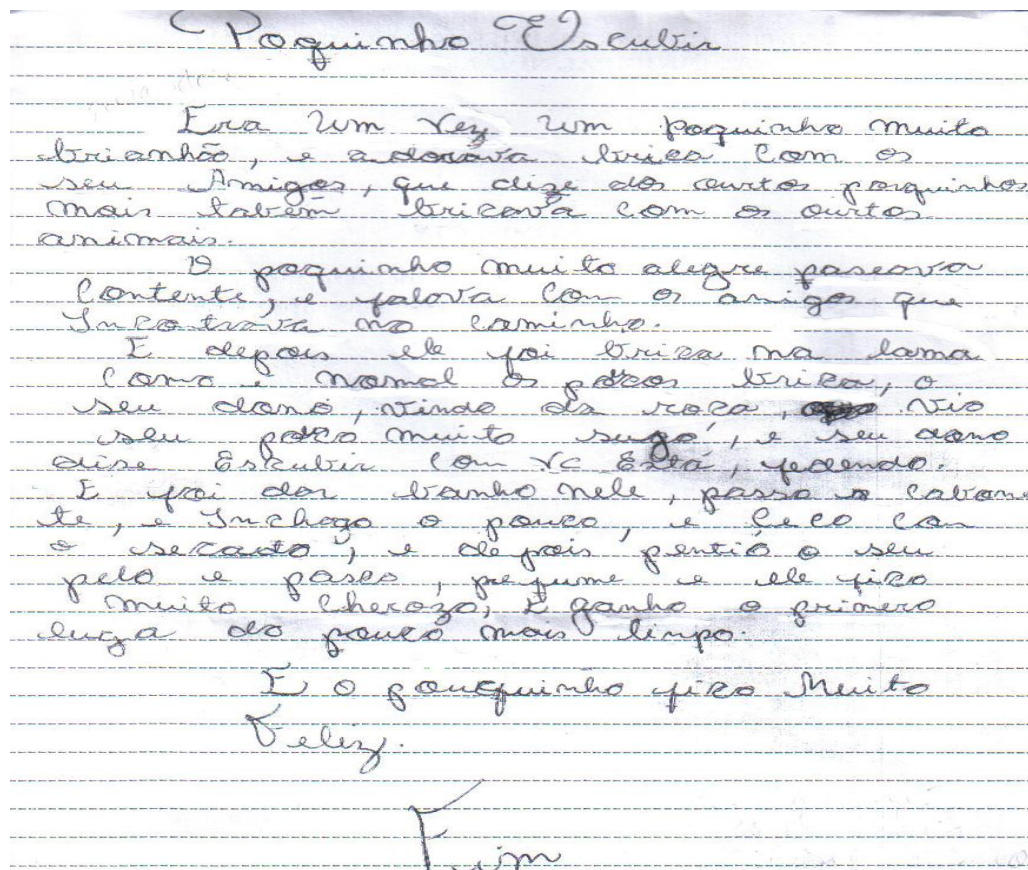 Poquinho Escubir
Era Um Vez Um poquinho muito
brianhão, e adorava brica com os
seu Amigos, que dize dos ourtos porquinhos
mais tabêm bricava com os ourtos
animais.
O poquinho muito alegre paseava
contente, e falava com os amigos que
Incontrava no caminho.
E depois ele foi brica na lama
como é nomal os pocos brica, o
seu dono, vindo da roca, vio
seu poco muito sugo, e seu dono
dise Escubir com vc Está, fedendo.
E foi dar banho nele, passo o cabone
te, e Inchago o pouco, e Ceco con
o secado, e depois pentiô o seu
pelo e paseo, pefume e ele fico
muito cherozo, E ganho o primero
luga do pouco mais linpo.
E o pouquinho fico Muito
Feliz.
Fim